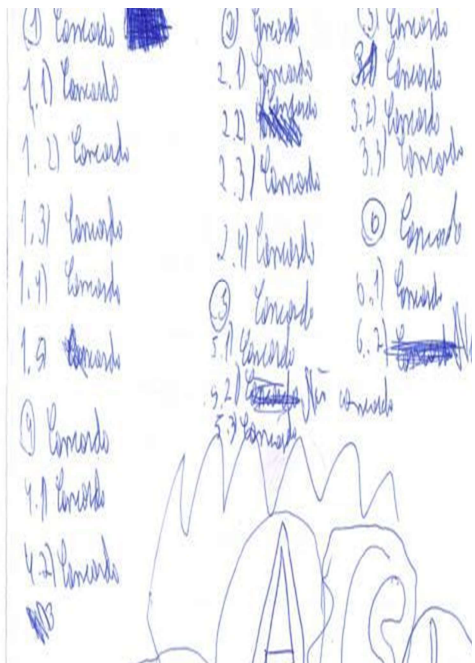 ① Concordo
1.1) Concordo
1.2) Concordo
1.3) Concordo
1.4) Concordo
1.5) Concordo
④ Concordo
4.1) Concordo
4.2) Concordo
② Concordo
2.1) Concordo
2.2) Concordo
2.3) Concordo
2.4) Concordo
⑤ Concordo
5.1) Concordo
5.2) Não concordo
5.3) Concordo
③ Concordo
3.1) Concordo
3.2) Concordo
3.3) Concordo
⑥ Concordo
6.1) Concordo
6.2)
A